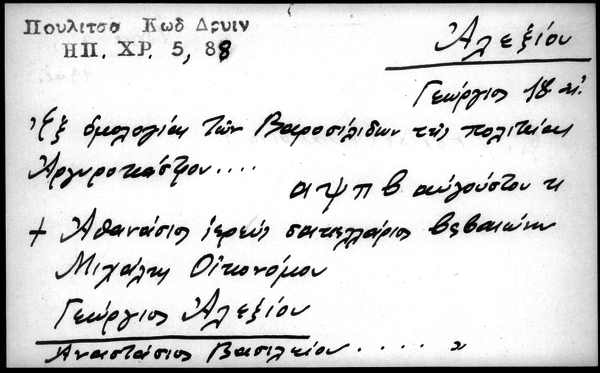 Πουλιτσα Κωδ Δρυιν
ΗΠ. ΧΡ. 5, 88
Ἀλεξίου
Γεώργιος 18 αἰ.
Ἐξ ὁμολογίας τῶν Βαροσιλιδων τῆς πολιτείας
Ἀργυροκάστρου....
αψπβ αὐγούστου κ
+ Ἀθανάσιος ἱερεύς σακελλάριος βεβαιώνω
Μιχάλης Οἰκονόμου
Γεώργιος Ἀλεξίου
Αναστάσιος Βασιλείου.....»